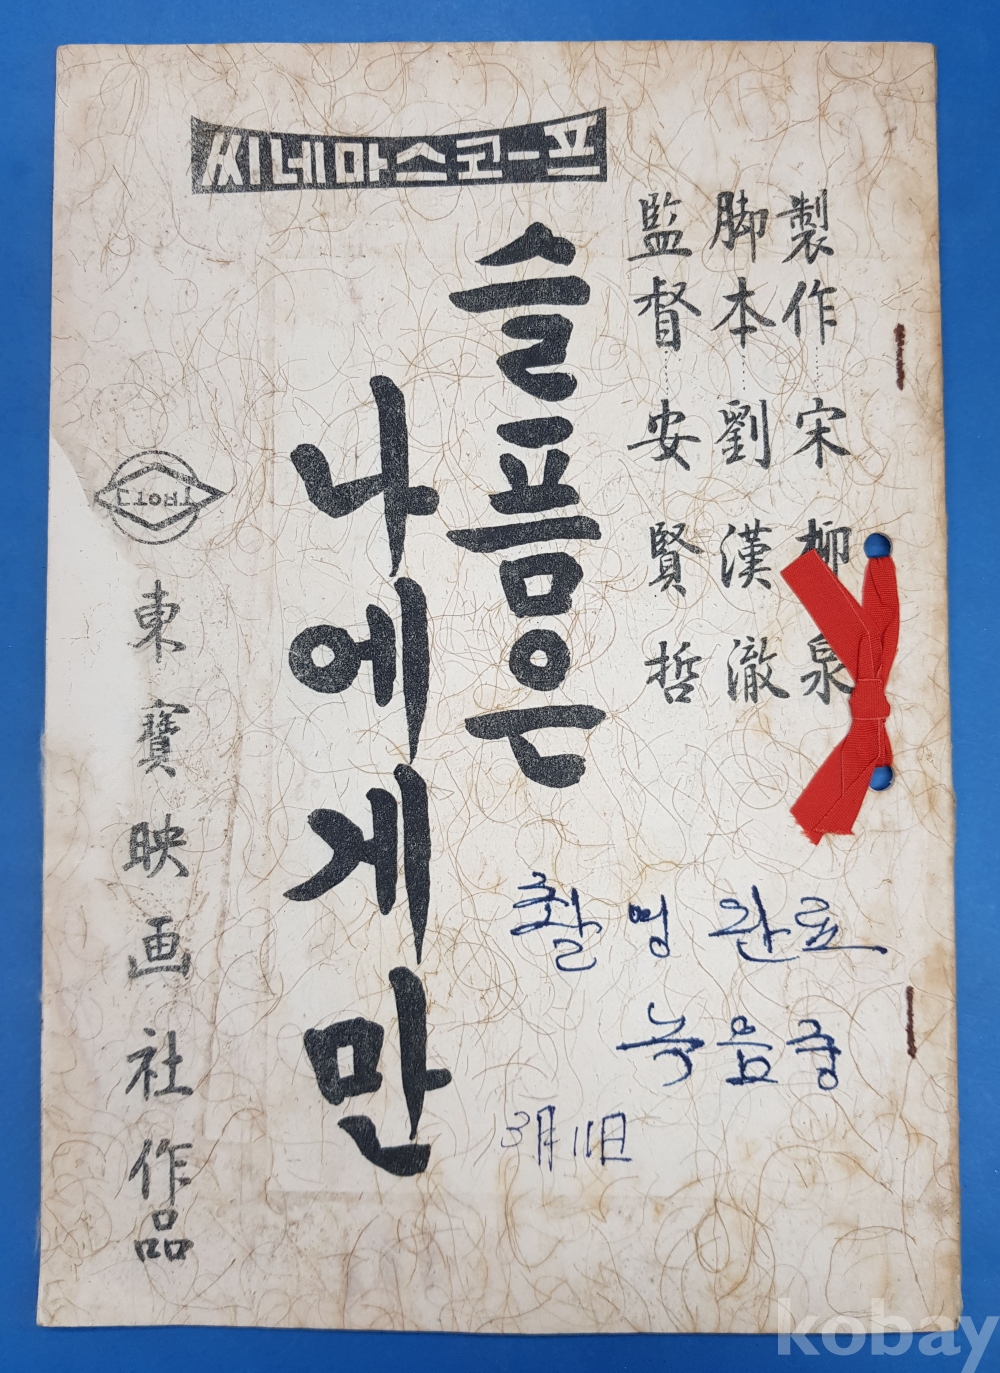 씨네마스코-프
製作……宋柳泉
脚本……劉漢澈
監督……安賢哲
슬픔은
나에게만
東寶映画社作品
촬영완료
녹음중
3月11日
kobay